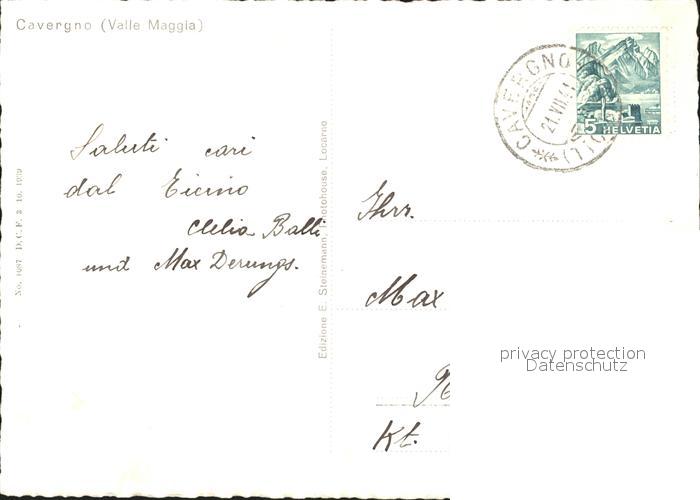 Cavergno (Valle Maggia)
Saluti cari
dal Ticino
Clelia Balli
und Max Derungs.
No. 1087 D.C.F. 3 10. 1939
Edizione E. Steinemann, Photohouse, Locarno
CAVERGNO
21.VII.41
5 HELVETIA
Max
Kt.
privacy protection
Datenschutz